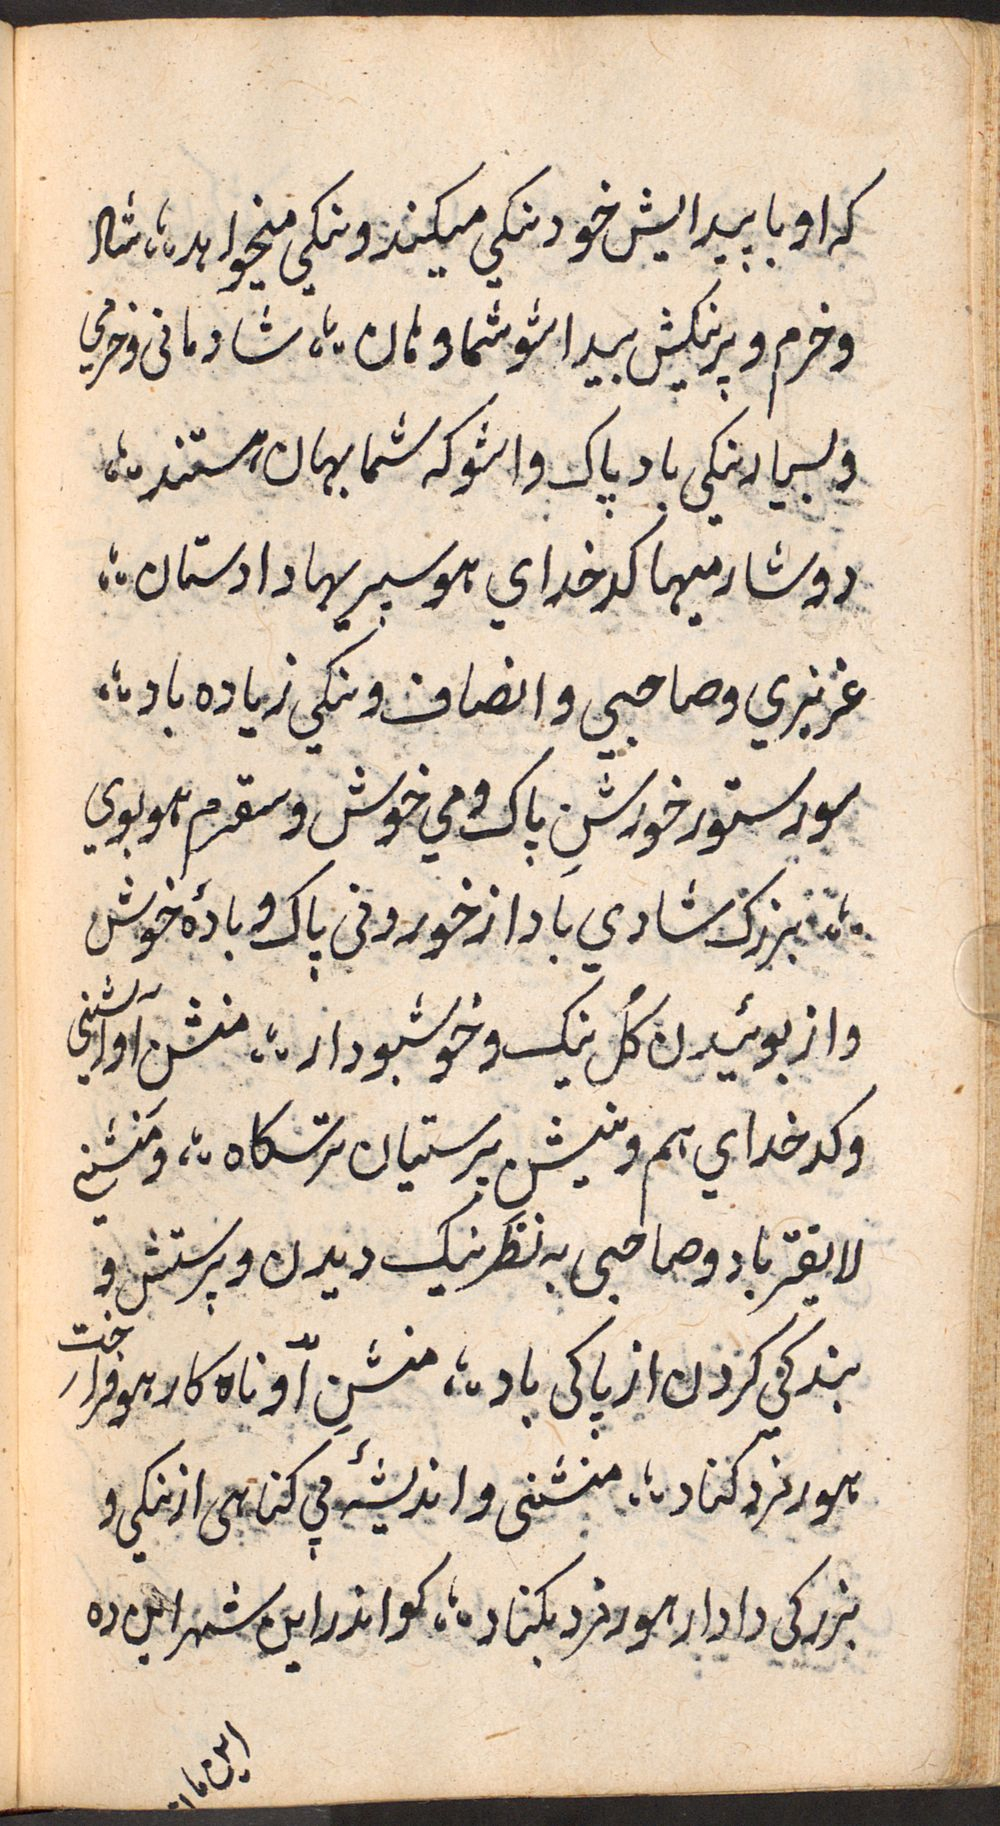 که او با پیدایش خود نیکي میکند و نیکي میخواهد ؞ شاد
و خرم و پر نیکیش پیدا شو شما و مان ؞ شادمانی و خرمي
و بسیار نیکي باد پاک و اشو که شما بهان هستند ؞
دوشارمیها کدخداي هو سپریها دادستان ؞
عزیزي و صاحبي و انصاف و نیکي زیاده باد ؞
سور ستور خورشنِ پاک و مي خوش و سقرم هو بوي
؞ بزرک شادي باد از خوردنی پاک و بادهٔ خوش
و از بوئیدن کُل نیک و خوشبودار ؞ منشن
و کدخداي هم و پرستیان ؞ و منشني
لایقتر باد و صاحبی به نظر نیک دیدن و پرستش و
بندکي کردن از پاکی باد ؞ منشنِ اَو ناه کار هو
هورمزد کناد ؞ منشنی و اندیشهٔ بي کناهی از نیکي و
بزرکی دادار هورمزد بکناد ؞ کو اندر این شهر این ده
این ما